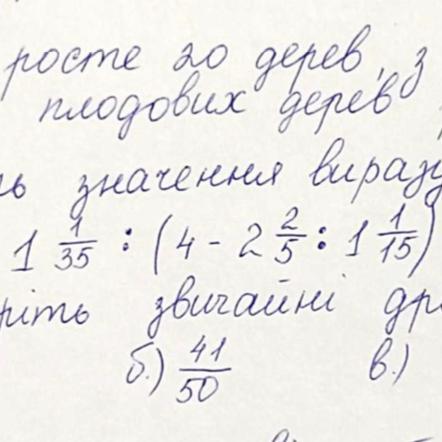 росте 20 дерев, з
плодових дерев
значення виразу
1 1/35 : (4 - 2 2/5 : 1 1/15)
звичайні
б.) 41/50 в.)